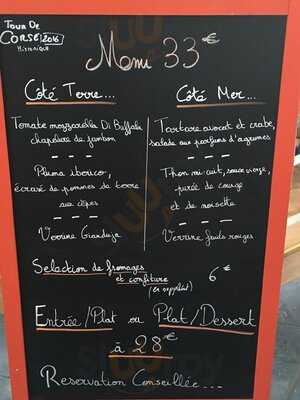 TOUR DE
CORSE 2016
HISTORIQUE
Menu 33 €
Côté Terre...
Tomate mozzarella Di Buffala
chapelure de jambon
Pluma iberico,
écrasé de pommes de terre
aux cèpes
Verrine Gianduja
Côté Mer...
Tartare avocat et crabe,
salade aux parfums d'agrumes
Thon mi-cuit, sauce vierge,
purée de courge
et de noisette
Verrine fruits rouges
Selection de fromages
et confiture
(en supplément) 6 €
Entrée/Plat ou Plat/Dessert
à 28 €
Reservation Conseillée...